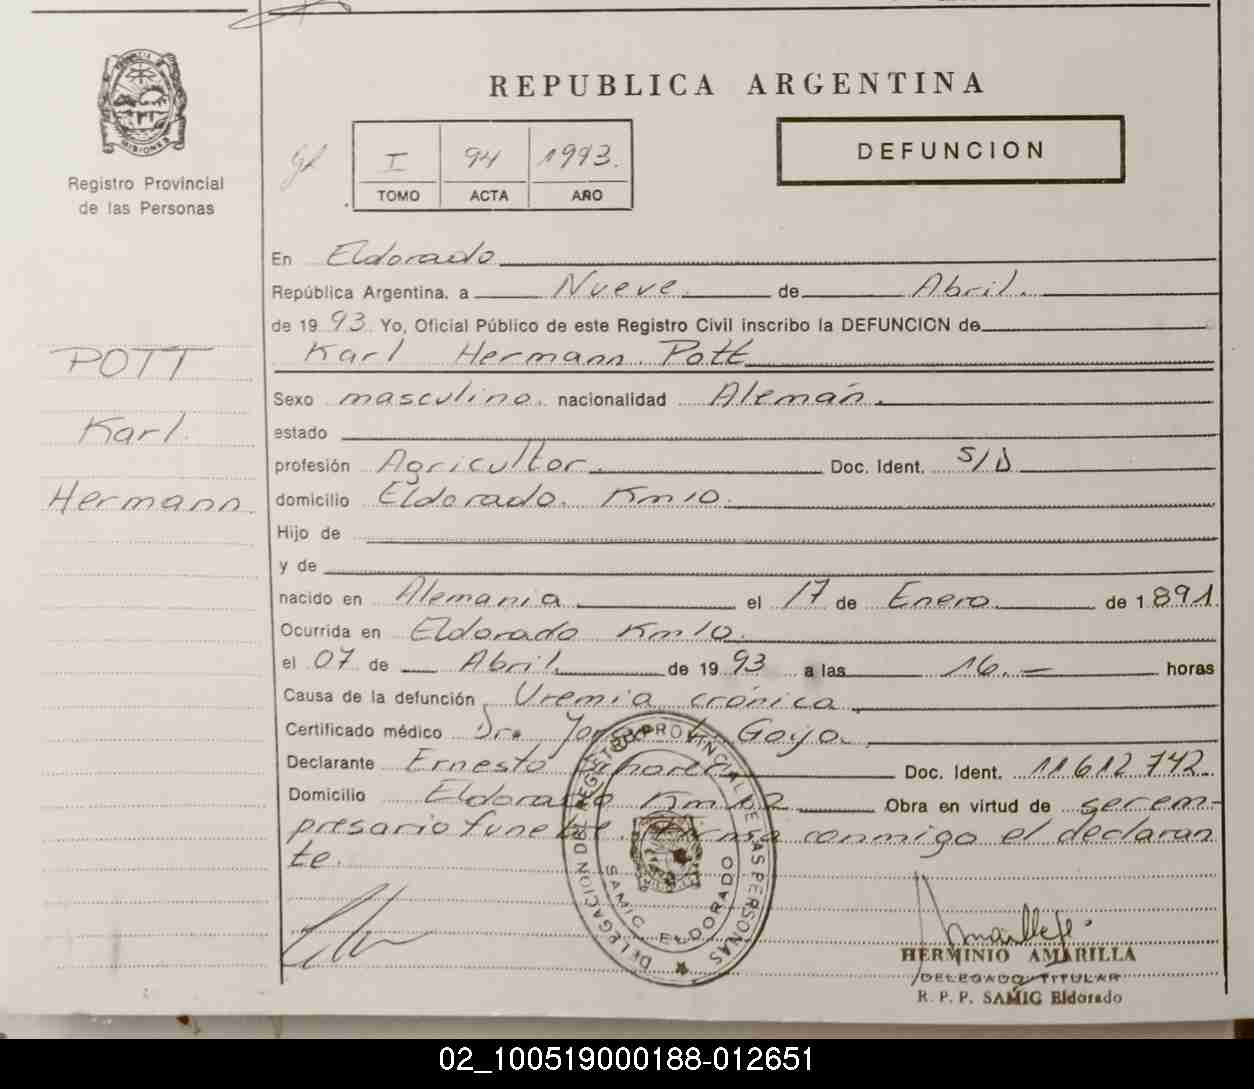 REPUBLICA ARGENTINA
PROVINCIA D MISIONES
Registro Provincial
de las Personas
I 94 1993.
TOMO ACTA AÑO
DEFUNCION
En Eldorado
República Argentina. a Nueve de Abril.
de 19 93. Yo, Oficial Público de este Registro Civil inscribo la DEFUNCION de
Karl Hermann Pott
POTT
Karl.
Hermann.
Sexo masculino. nacionalidad Alemán.
estado
profesión Agricultor. Doc. Ident. S/D
domicilio Eldorado. Km 10.
Hijo de
y de
nacido en Alemania el 17 de Enero. de 1 891
Ocurrida en Eldorado Km 10.
el 07 de Abril. de 19 93 a las 16.- horas
Causa de la defunción Uremia crónica.
Certificado médico Dr. Goya.
Declarante Ernesto Doc. Ident. 11612742.
Domicilio Eldorado Km Obra en virtud de ser em-
presario funebre. conmigo el declaran
te.
DELEGACION DEL REGISTRO PROVINCIAL DE LAS PERSONAS
SAMIC ELDORADO
HERMINIO AMARILLA
DELEGADO TITULAR
R. P. P. SAMIC Eldorado
02_100519000188-012651